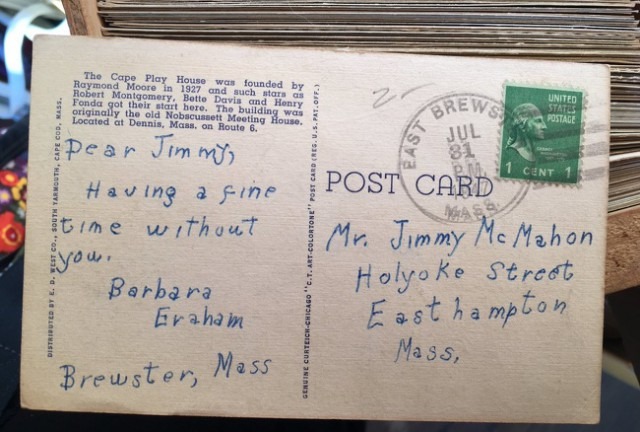 The Cape Play House was founded by
Raymond Moore in 1927 and such stars as
Robert Montgomery, Bette Davis and Henry
Fonda got their start here. The building was
originally the old Nobscussett Meeting House.
Located at Dennis, Mass. on Route 6.
Dear Jimmy,
Having a fine
time without
you.
Barbara
Graham
Brewster, Mass
DISTRIBUTED BY E. D. WEST CO., SOUTH YARMOUTH, CAPE COD, MASS.
GENUINE CURTEICH-CHICAGO "C.T. ART-COLORTONE" POST CARD (REG. U.S. PAT. OFF.)
POST CARD
EAST BREWS
JUL
31
P.M.
MASS.
UNITED
STATES
POSTAGE
1 CENT 1
Mr. Jimmy McMahon
Holyoke Street
Easthampton
Mass,